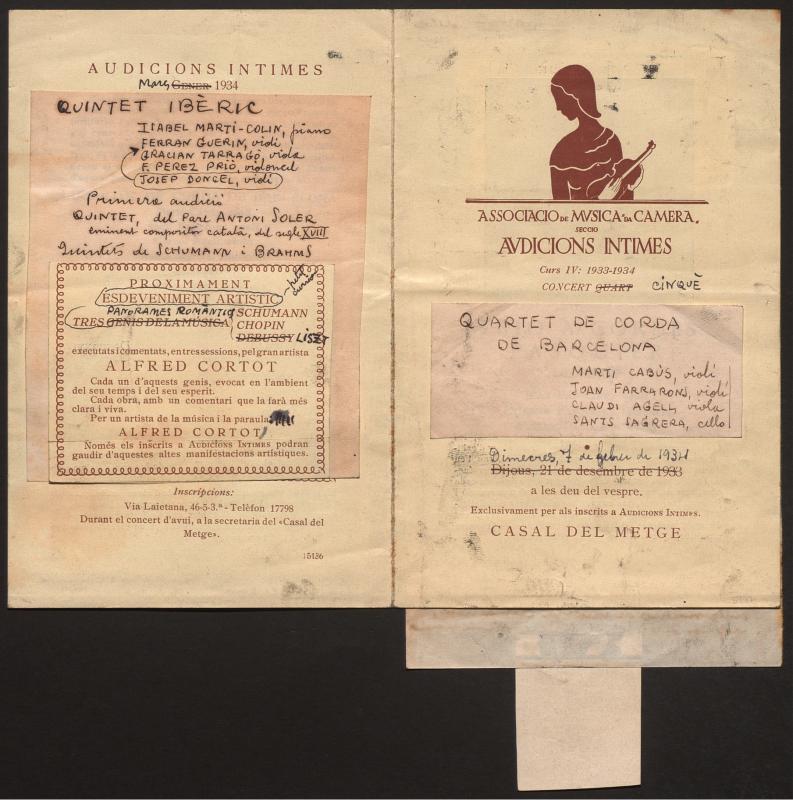 AUDICIONS INTIMES
Març GENER 1934
QUINTET IBÈRIC
ISABEL MARTÍ-COLIN, piano
FERRAN GUERIN, violí
GRACIAN TARRAGÓ, viola
F. PEREZ PRIÓ, violoncel
JOSEP DONCEL, violí
Primera audició
QUINTET, del Pare ANTONI SOLER
eminent compositor català, del segle XVIII
Quintets de SCHUMANN i BRAHMS
PROXIMAMENT
ESDEVENIMENT ARTISTIC
PANORAMES ROMÀNTICS
TRES GENIS DE LA MÚSICA
SCHUMANN
CHOPIN
DEBUSSY LISZT
executats i comentats, en tres sessions, pel gran artista
ALFRED CORTOT
Cada un d'aquests genis, evocat en l'ambient
del seu temps i del seu esperit.
Cada obra, amb un comentari que la farà més
clara i viva.
Per un artista de la música i la paraula:
ALFRED CORTOT
Només els inscrits a AUDICIONS INTIMES podran
gaudir d'aquestes altes manifestacions artístiques.
Inscripcions:
Via Laietana, 46-5-3.ª - Telèfon 17798
Durant el concert d'avui, a la secretaria del «Casal del
Metge».
15136
ASSOCIACIO DE MVSICA DA CAMERA.
SECCIO
AVDICIONS INTIMES
Curs IV: 1933-1934
CONCERT QUART CINQUÈ
QUARTET DE CORDA
DE BARCELONA
MARTI CABÚS, violí
JOAN FARRARONS, violí
CLAUDI AGELL, viola
SANTS SAGRERA, cello
Dimecres, 7 de febrer de 1934
Dijous, 21 de desembre de 1933
a les deu del vespre.
Exclusivament per als inscrits a AUDICIONS INTIMES.
CASAL DEL METGE